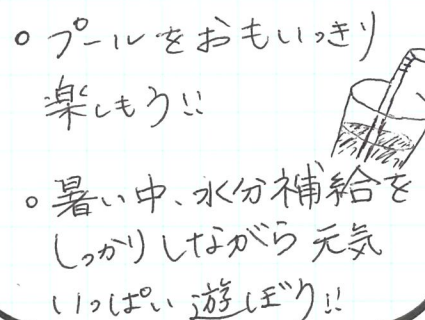 ○ プールをおもいっきり
楽しもう!!
○ 暑い中、水分補給を
しっかりしながら元気
いっぱい遊ぼう!!